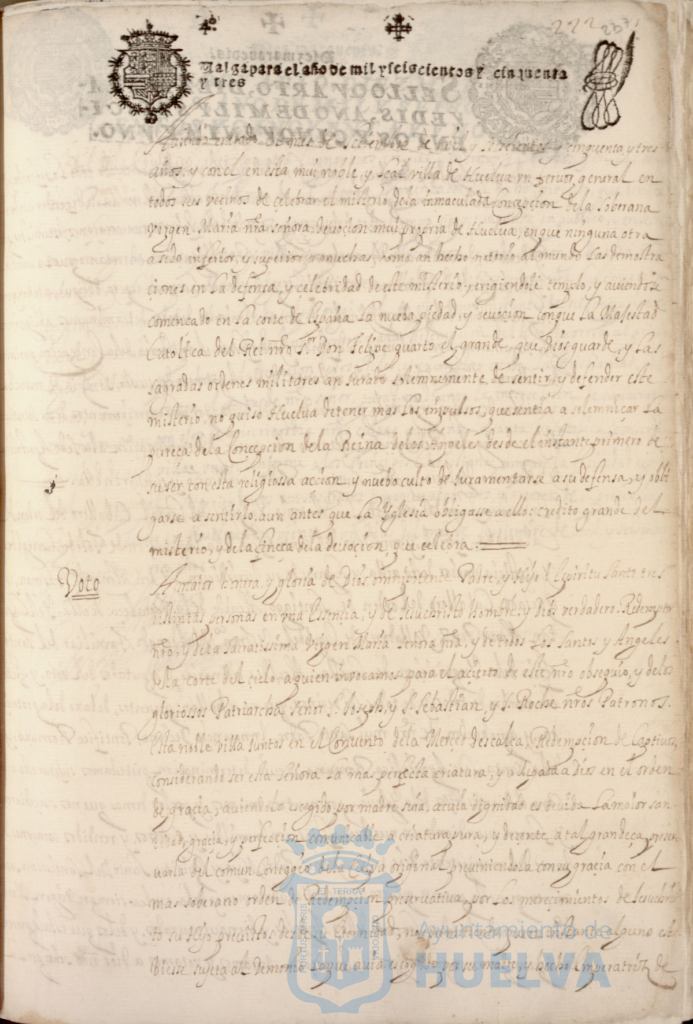 222 287
Valga para el año de mil y seiscientos y cinquenta
y tres
SELLO QVARTO
años, y con el en esta mui noble, y Leal villa de Huelva vn feruor general en
todos sus vecinos de celebrar el misterio dela inmaculada Concepcion de la Soberana
Virgen Maria nrā señora, deuocion mui propria de Huelua, en que ninguna otra
a sido inferior, es superior a muchas, como an hecho notorio al mundo las demostra
ciones en la defensa, y celebridad de este misterio, erigiendole templo, y auiendose
comencado en la corte de España la nueba piedad, y deuocion con que La Magestad
Catolica del Rei nrō Sr. Don Felipe quarto el grande, que Dios guarde, y las
sagradas ordenes militares an jurado solemnemente de sentir, y defender este
misterio, no quiso Huelua detener mas los impulsos, que sentia a solemniçar La
pureça de la Concepcion de la Reina delos Angeles desde el instante primero de
su ser, con esta religiossa accion, y nuebo culto de Juramentarse a su defensa, y obli
garse a sentirlo, aun antes que La Yglesia obligasse a ello: credito grande del
misterio, y dela fineça dela deuocion, que celebra.
Voto
A maior honrra, y gloria de Dios omnipotente Padre, y Hijo, y Espiritu Santo tres
distintas personas en vna Essencia, y de Jesuchristo Hombre, y Dios verdadero Redemptor
nrō, y dela sacratissima virgen Maria Señora nrā, y de todos Los Santos y Angeles
dela corte del cielo, a quien invocamos para el acierto de este nrō obsequio, y delos
gloriossos Patriarcha señor S. Joseph, y S. Sebastian, y S. Roche nrōs Patronos.
Esta noble villa juntos en el Conuento dela Merced descalça, Redempcion de Captiuos,
considerando ser esta Señora La mas perfecta criatura, y allegada a Dios en el orden
de gracia, auiendola escogido por madre suia, a cuia dignidad es deuida La maior san
tidad, gracia, y perfeccion comunicable a criatura pura, y decente a tal grandeça, preser
uarla del comun Contagio de la Culpa original preuiniendola con su gracia con el
mas soberano orden de Redempcion preseruatiua, por Los merecimientos de Jesuchris
to su Hijo preuistos desde su Eternidad, no permitiendo, que en instante alguno estu
biesse sujeta al demonio La que auia escogido por su madre, y hecho Emperatriz de
Ayuntamiento de
HUELVA